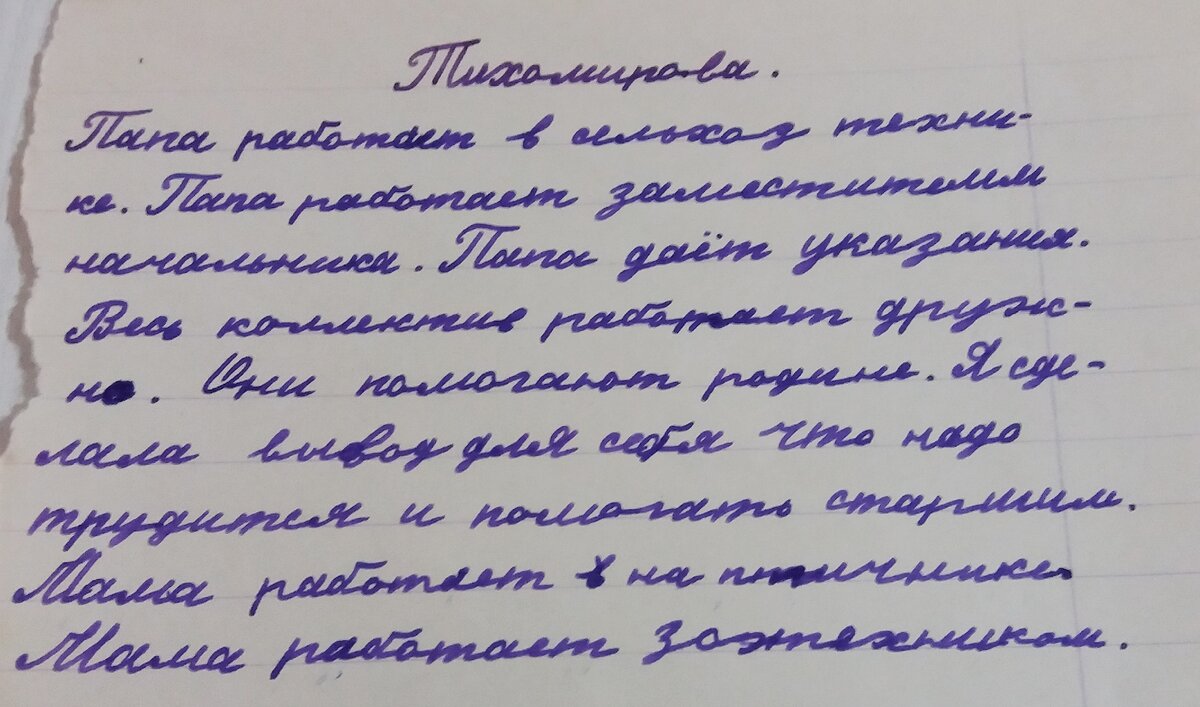 Тихомирова.
Папа работает в сельход техни-
ке. Папа работает заместителем
начальника. Папа даёт указания.
Весь коллектив работает друж-
но. Они помогают родине. Я сде-
лала вывод для себя что надо
трудится и помогать старшим.
Мама работает в на птичнике.
Мама работает зоотехником.